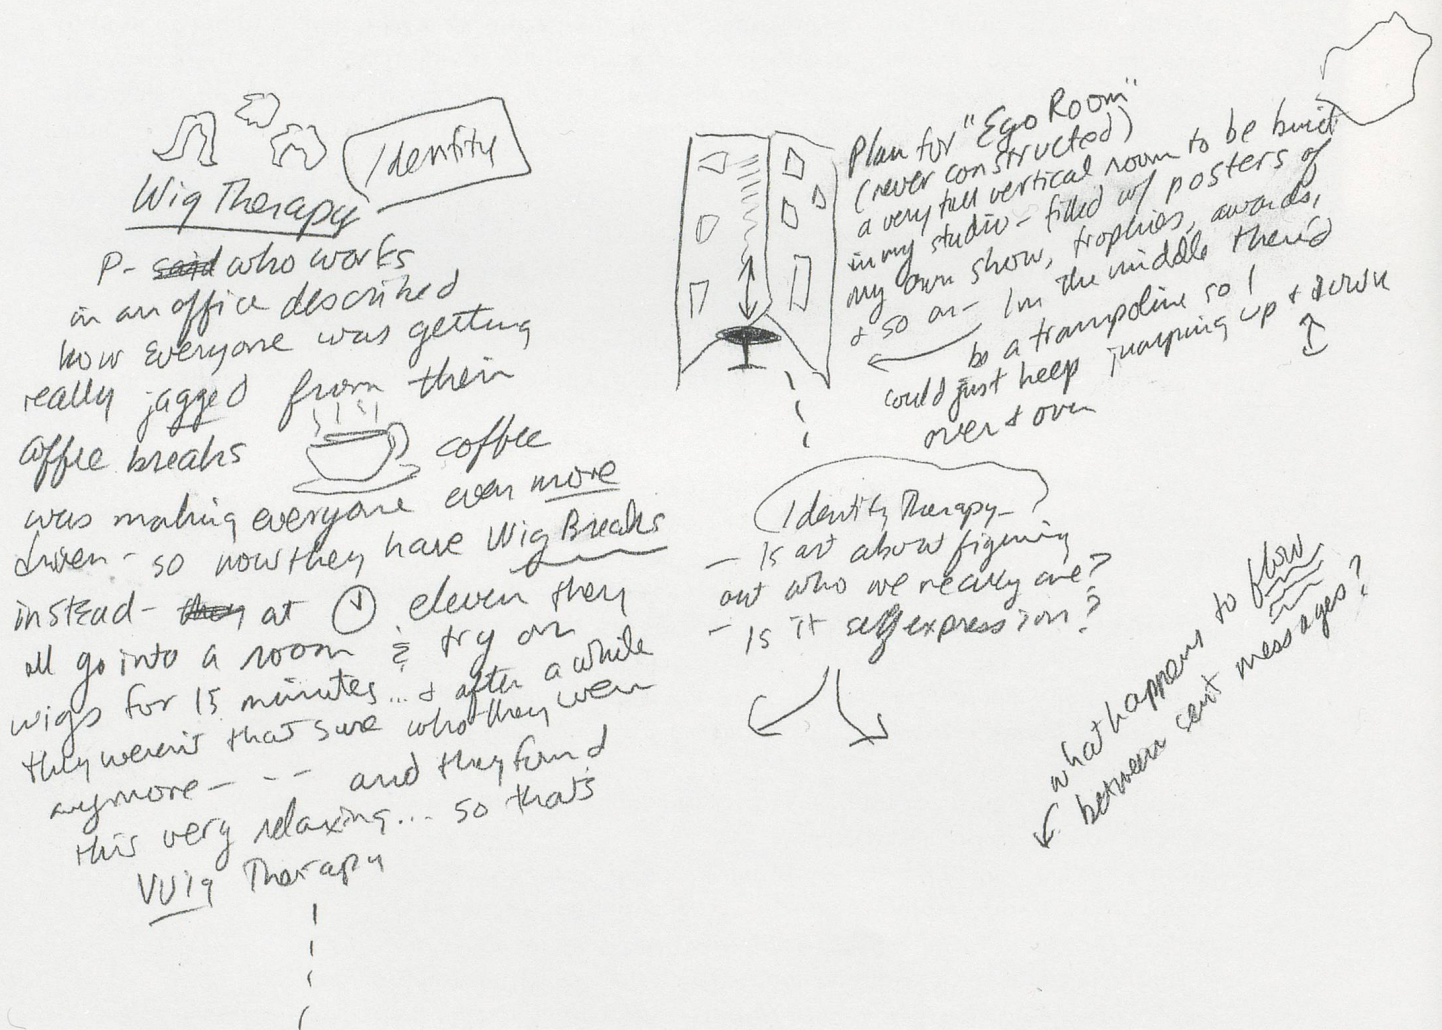 Identity
Wig Therapy
P- said who works
in an office described
how everyone was getting
really jagged from their
coffee breaks coffee
was making everyone even more
driven - so now they have Wig Breaks
instead - they at eleven they
all go into a room & try on
wigs for 15 minutes... & after a while
they weren't that sure who they were
anymore - - - and they found
this very relaxing... so that's
Wig Therapy
Plan for "Ego Room"
(never constructed)
a very tall vertical room to be built
in my studio - filled w/ posters of
my own show, trophies, awards,
& so on - In the middle there'd
be a trampoline so I
could just keep jumping up & down
over & over
Identity Therapy -
- Is art about figuring
out who we really are?
- Is it self expression?
what happens to flow
between cent messages?